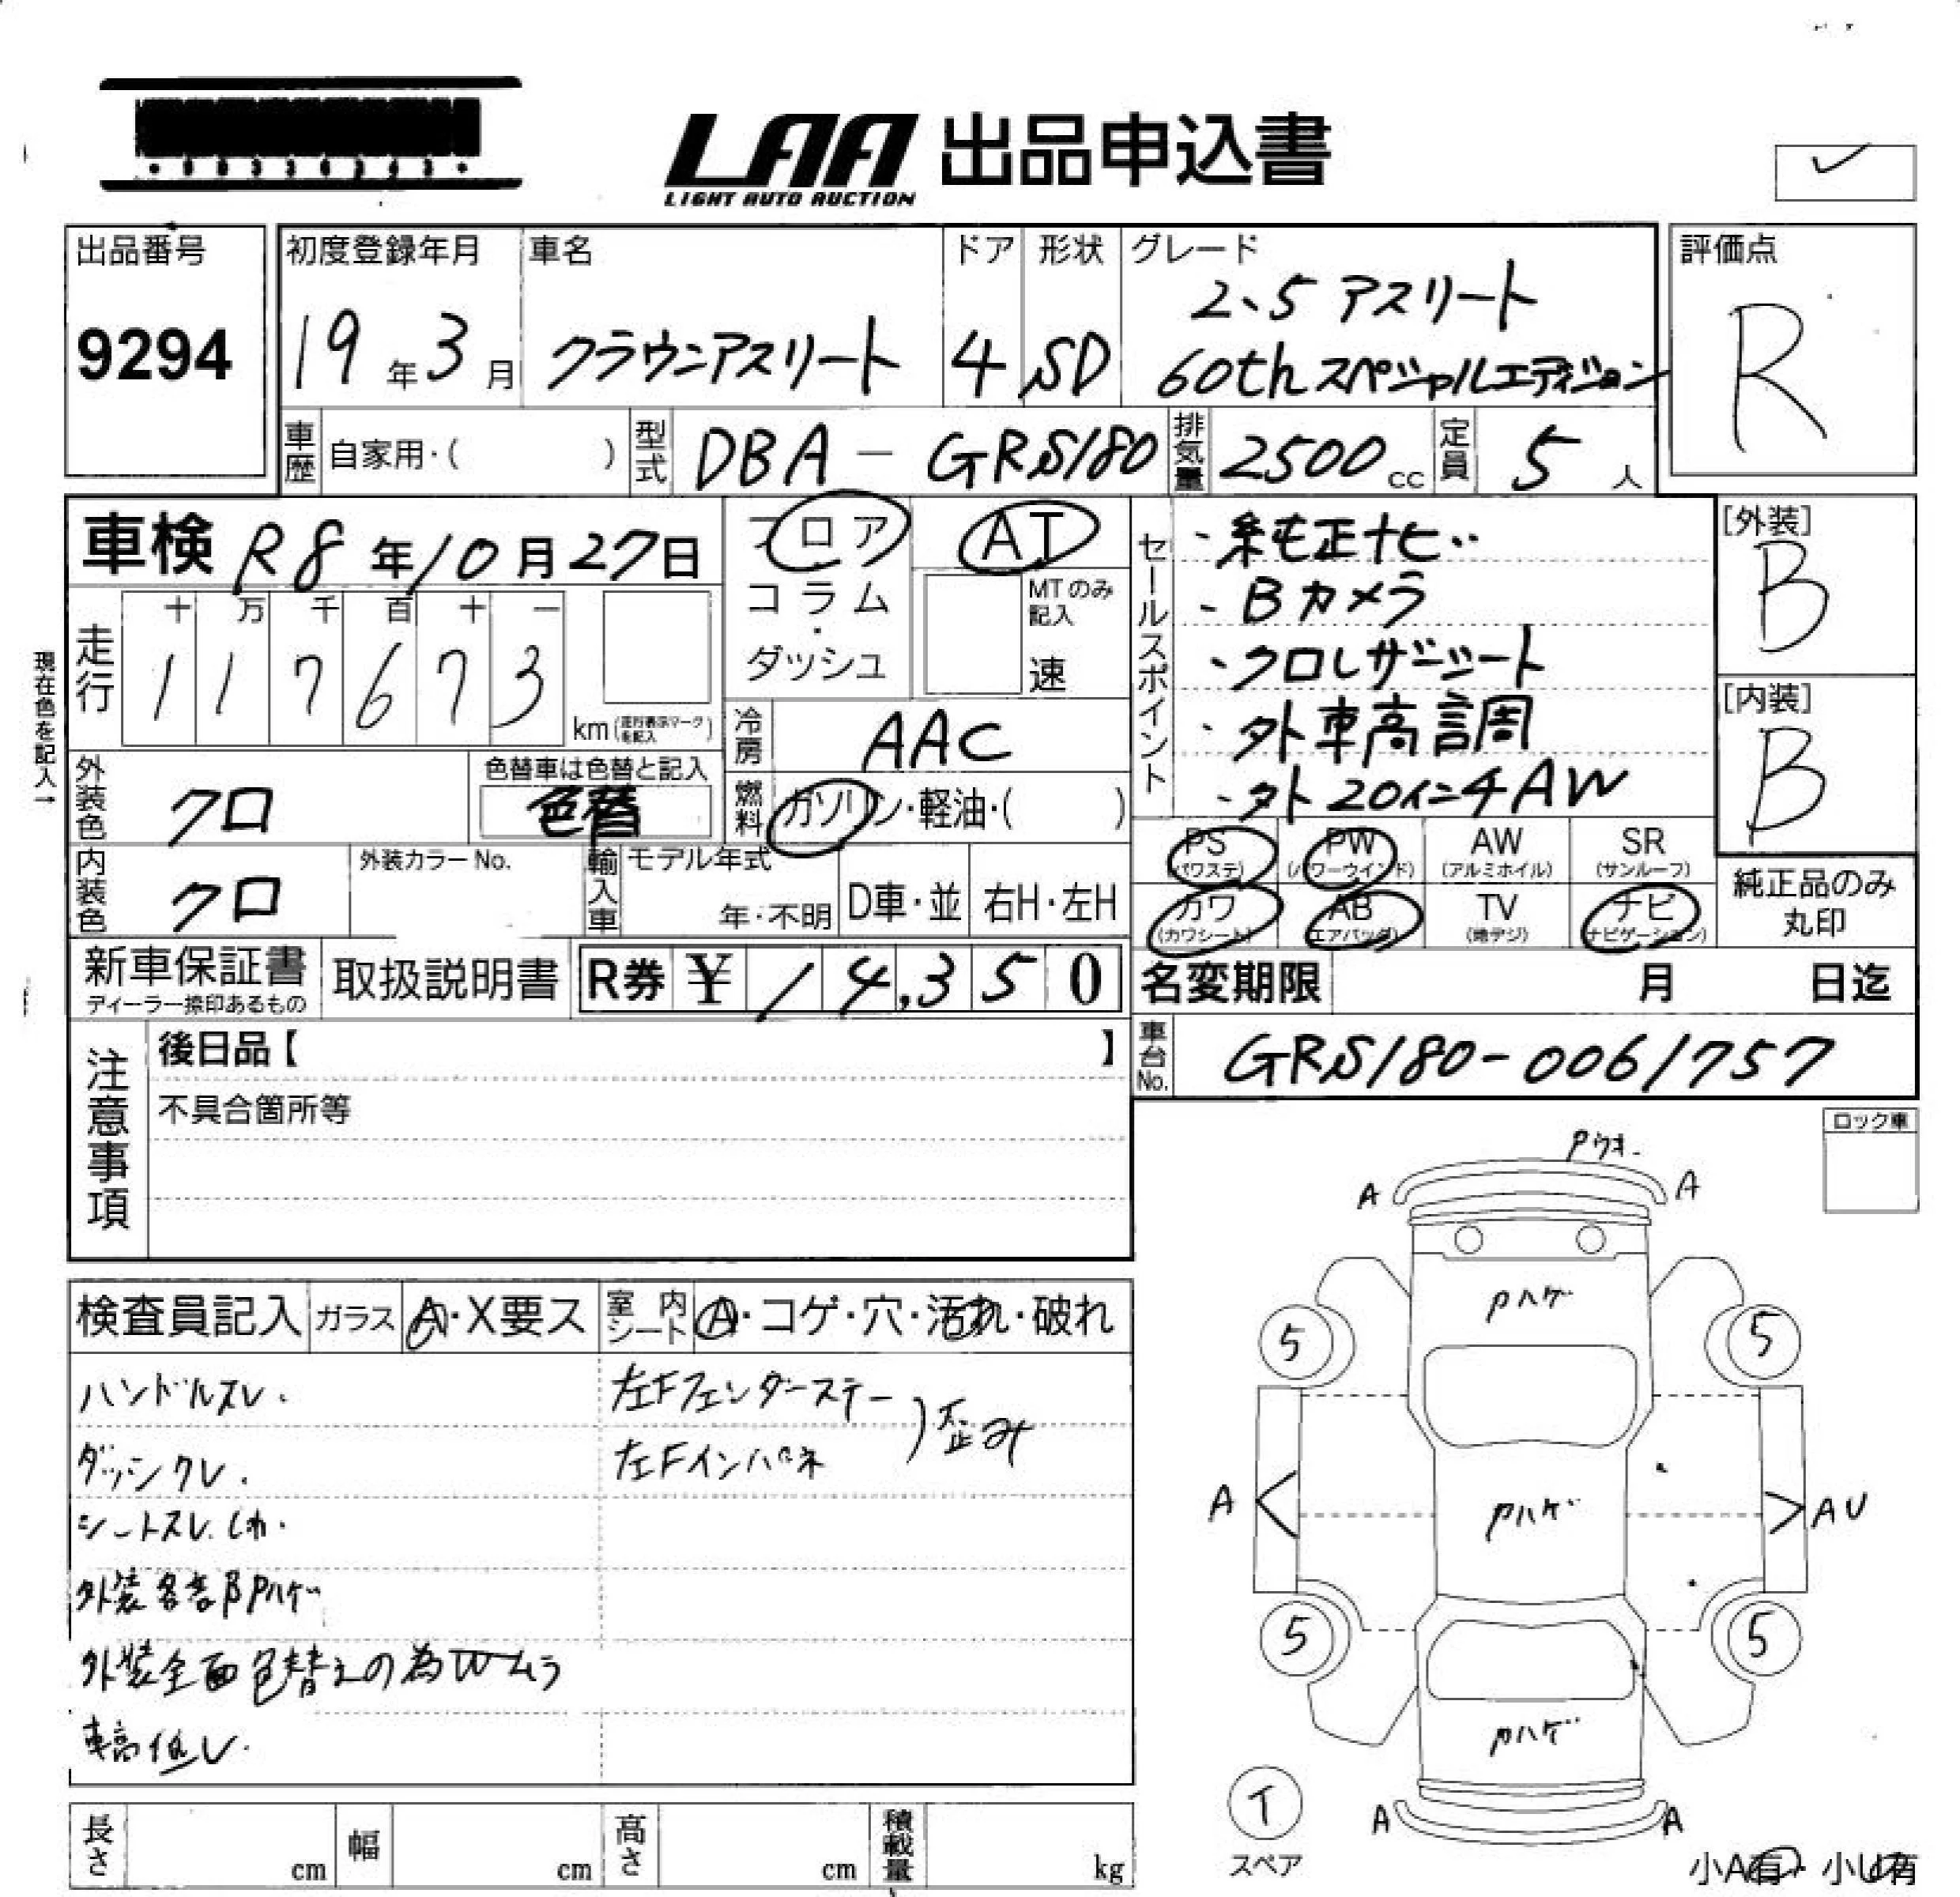 LAA 出品申込書
LIGHT AUTO AUCTION
出品番号
9294
初度登録年月
19年3月
車名
クラウンアスリート
ドア
4
形状
SD
グレード
2.5 アスリート
60th スペシャルエディション
評価点
R
車歴 自家用・( )
型式 DBA-GRS180
排気量 2500cc
定員 5人
車検 R8年10月27日
フロア
コラム・
ダッシュ
AT
MTのみ記入
速
走行
十 万 千 百 十 一
1 1 7 6 7 3
km(走行表示マークを記入)
現在色を記入→
冷房 AAC
燃料 ガソリン・軽油・( )
外装色 クロ
色替車は色替と記入
色替
内装色 クロ
外装カラーNo.
輸入車
モデル年式
年・不明
D車・並
右H・左H
セールスポイント
・純正ナビ
・Bカメラ
・クロレザーシート
・外車高調
・外20インチAW
[外装]
B
[内装]
B
PS(パワステ)
PW(パワーウインド)
AW(アルミホイル)
SR(サンルーフ)
カワ(カワシート)
AB(エアバッグ)
TV(地デジ)
ナビ(ナビゲーション)
純正品のみ
丸印
新車保証書
ディーラー捺印あるもの
取扱説明書
R券 ¥14,350
名変期限 月 日迄
車台No. GRS180-0061757
注意事項
後日品【 】
不具合箇所等
ロック車
検査員記入
ガラス A・X要ス
室内シート A・コゲ・穴・汚れ・破れ
ハンドルスレ.
左Fフェンダーステー
ダッシクレ.
左Fインパネ
)歪み
シートスレ.しわ.
外装各部Pハゲ
外装全面色替えの為Wムラ
車高低し.
Pウキ.
A A
Pハゲ
5 5
A Pハゲ AU
5 5
Pハゲ
A A
T
スペア
小A有・小U有
長さ cm
幅 cm
高さ cm
積載量 kg